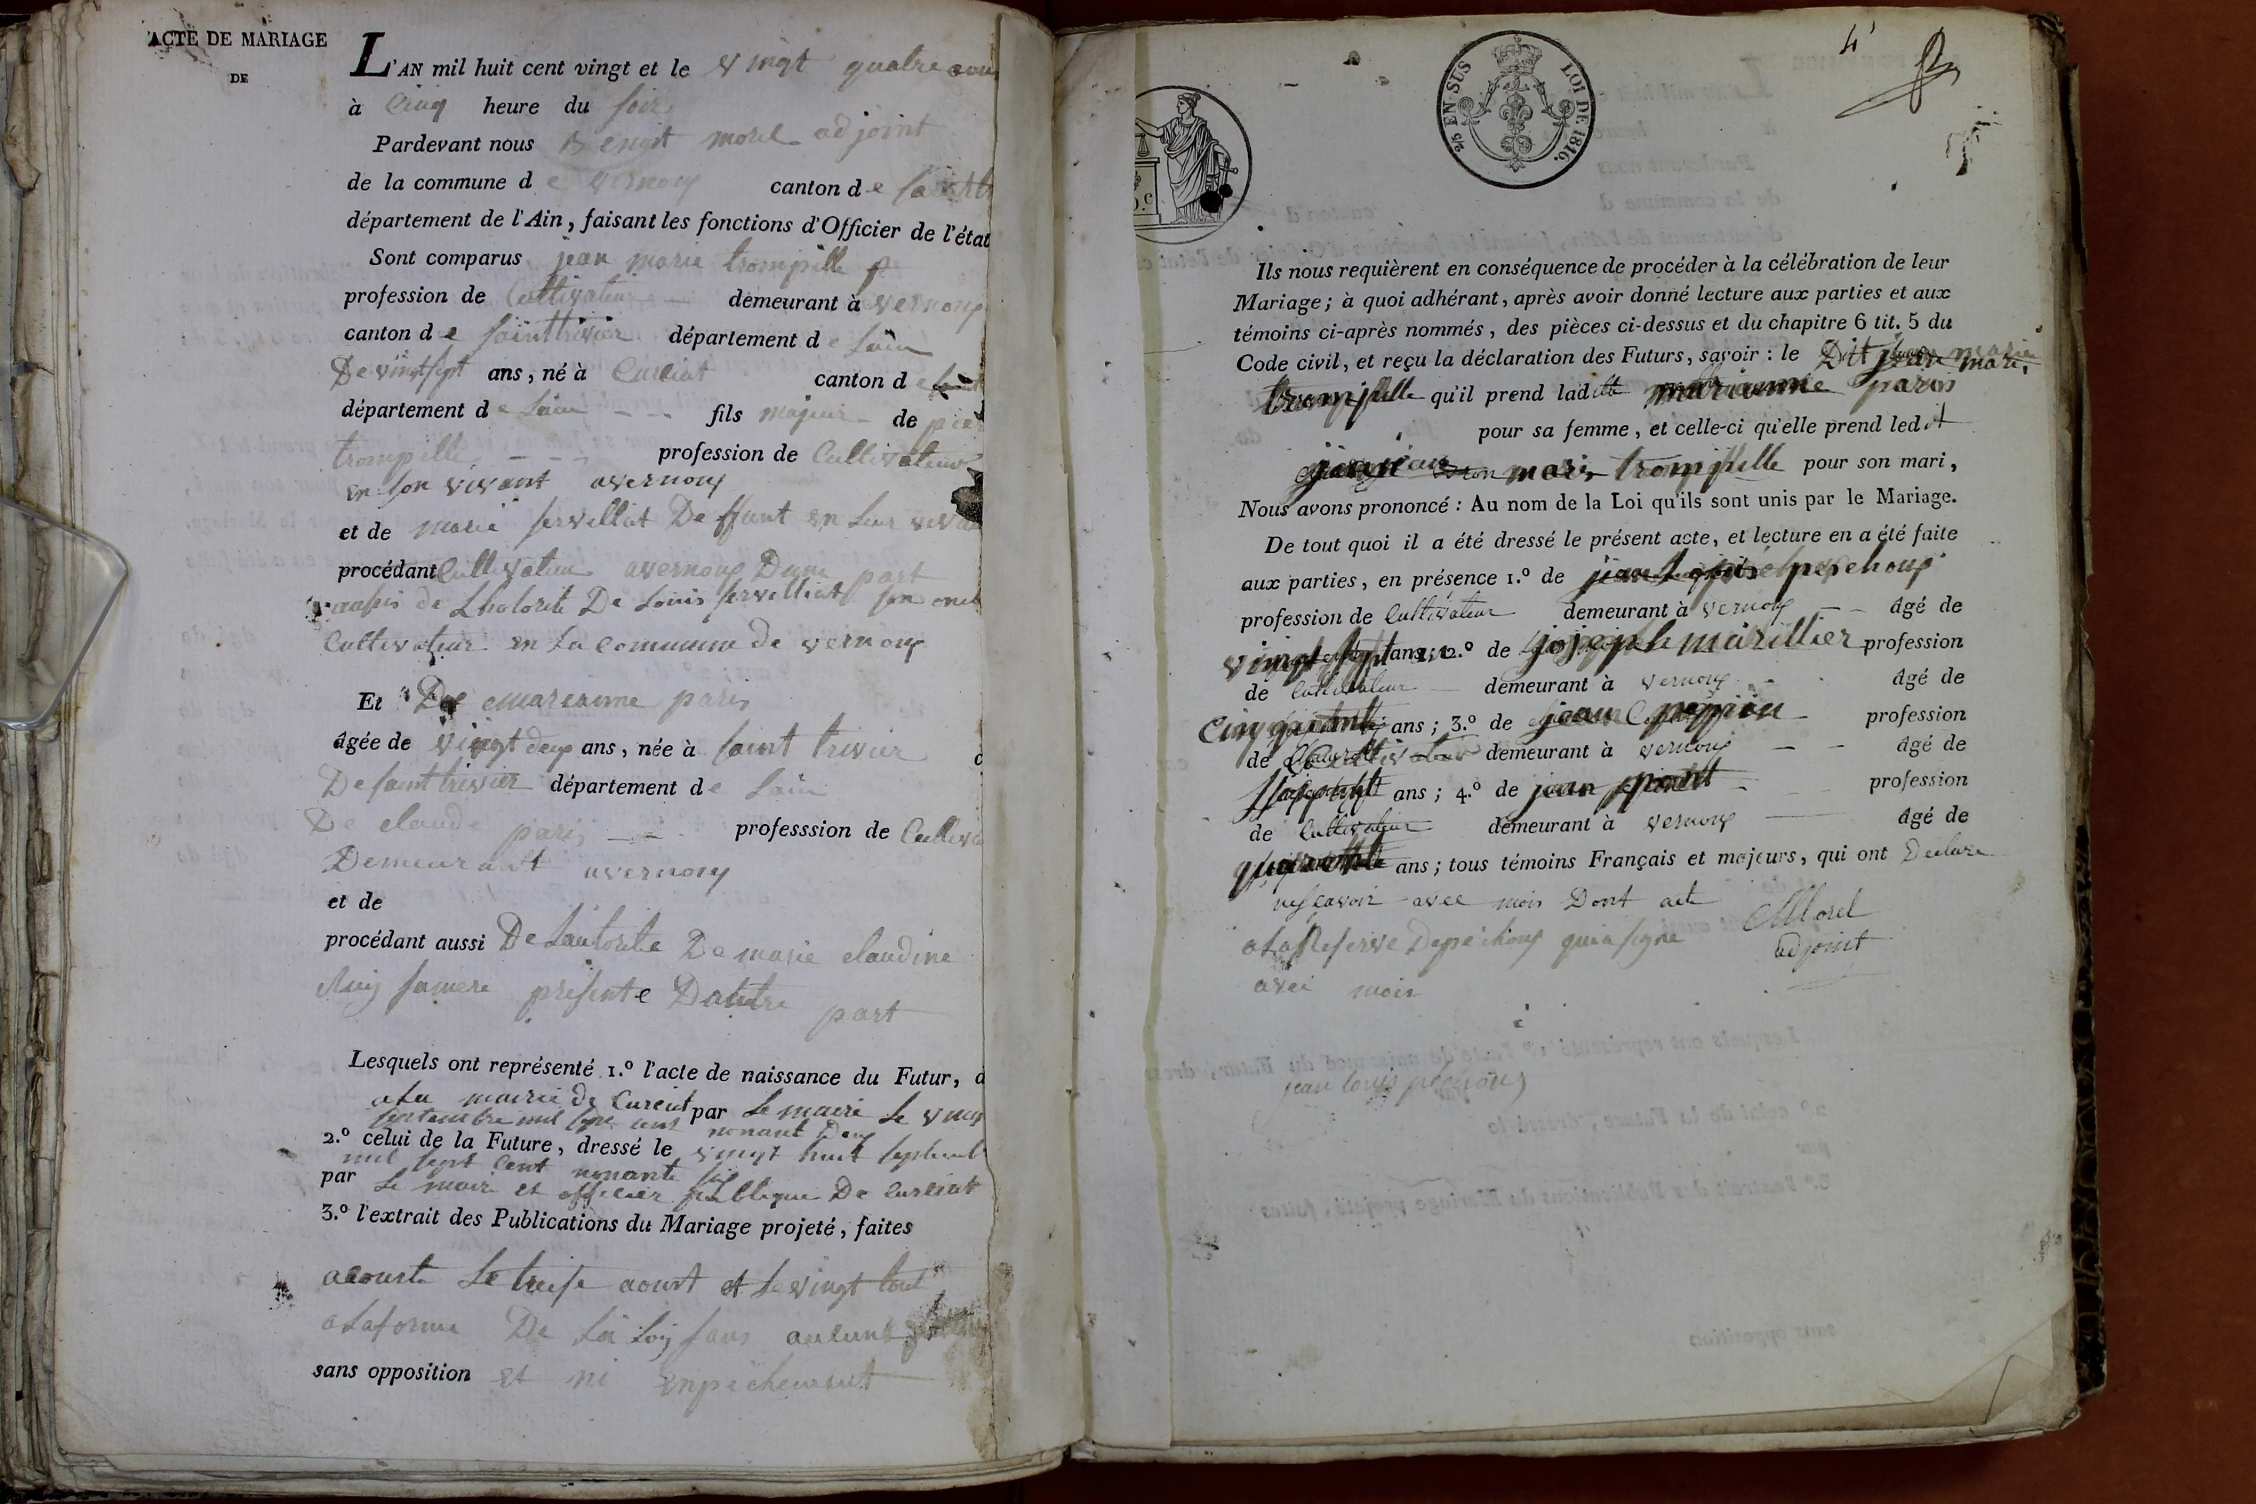 ACTE DE MARIAGE
DE
L'AN mil huit cent vingt et le vingt quatre aou
à Cinq heure du soir
Pardevant nous Benoit morel adjoint
de la commune de vernoux canton de saint tr
département de l'Ain, faisant les fonctions d'Officier de l'état
Sont comparus jean marie trompille
profession de Cultivateur demeurant à vernoux
canton de sainttrivier département de Lain
De vintsept ans, né à Curciat canton de
département de Lain fils majeur de pier
trompille profession de Cultivateur
en son vivant avernoux
et de marie servelliat Deffunt en Leur viva
procédant Cultivateur avernoux Dune part
de Lhotorite De Louis servelliat son oncl
Cultivateur en La Commune de vernoux
Et Dlle marianne paris
âgée de vingt deux ans, née à saint trivier
De sainttrivier département de Lain
De claude paris professsion de Cultiva
Demeurant avernoux
et de
procédant aussi De Lautorite De marie claudine
samere présente Dautre part
Lesquels ont représenté 1.º l'acte de naissance du Futur, d
a La mairie de Curciat par Le maire Le ving
septembre mil sept cent nonante Deux
2.º celui de la Future, dressé le vingt huit septemb
mil sept cent nonante six
par Le maire et officier publique De Curciat
3.º l'extrait des Publications du Mariage projeté, faites
Le treise aoust et Le vingt tout
a La forme De La Loy sans aucune
sans opposition et ni enpechement
4
2/5 EN SUS LOI DE 1816.
Ils nous requièrent en conséquence de procéder à la célébration de leur
Mariage; à quoi adhérant, après avoir donné lecture aux parties et aux
témoins ci-après nommés, des pièces ci-dessus et du chapitre 6 tit. 5 du
Code civil, et reçu la déclaration des Futurs, savoir : le Dit jean marie
trompille qu'il prend ladite marianne paris
pour sa femme, et celle-ci qu'elle prend ledit
jean marie trompille pour son mari,
Nous avons prononcé : Au nom de la Loi qu'ils sont unis par le Mariage.
De tout quoi il a été dressé le présent acte, et lecture en a été faite
aux parties, en présence 1.º de jean Louis pechoux
profession de Cultivateur demeurant à vernoux âgé de
vingt sept ans; 2.º de joseph marillier profession
de Cultivateur demeurant à vernoux âgé de
Cinquante ans; 3.º de jean profession
de Cultivateur demeurant à vernoux âgé de
ans; 4.º de jean profession
de Cultivateur demeurant à vernoux âgé de
quarante ans; tous témoins Français et majeurs, qui ont Declare
ne scavoir avec mois Dont acte Morel
a La Reserve De pechoux qui a signe adjoint
avec mois
jean louis péchoux